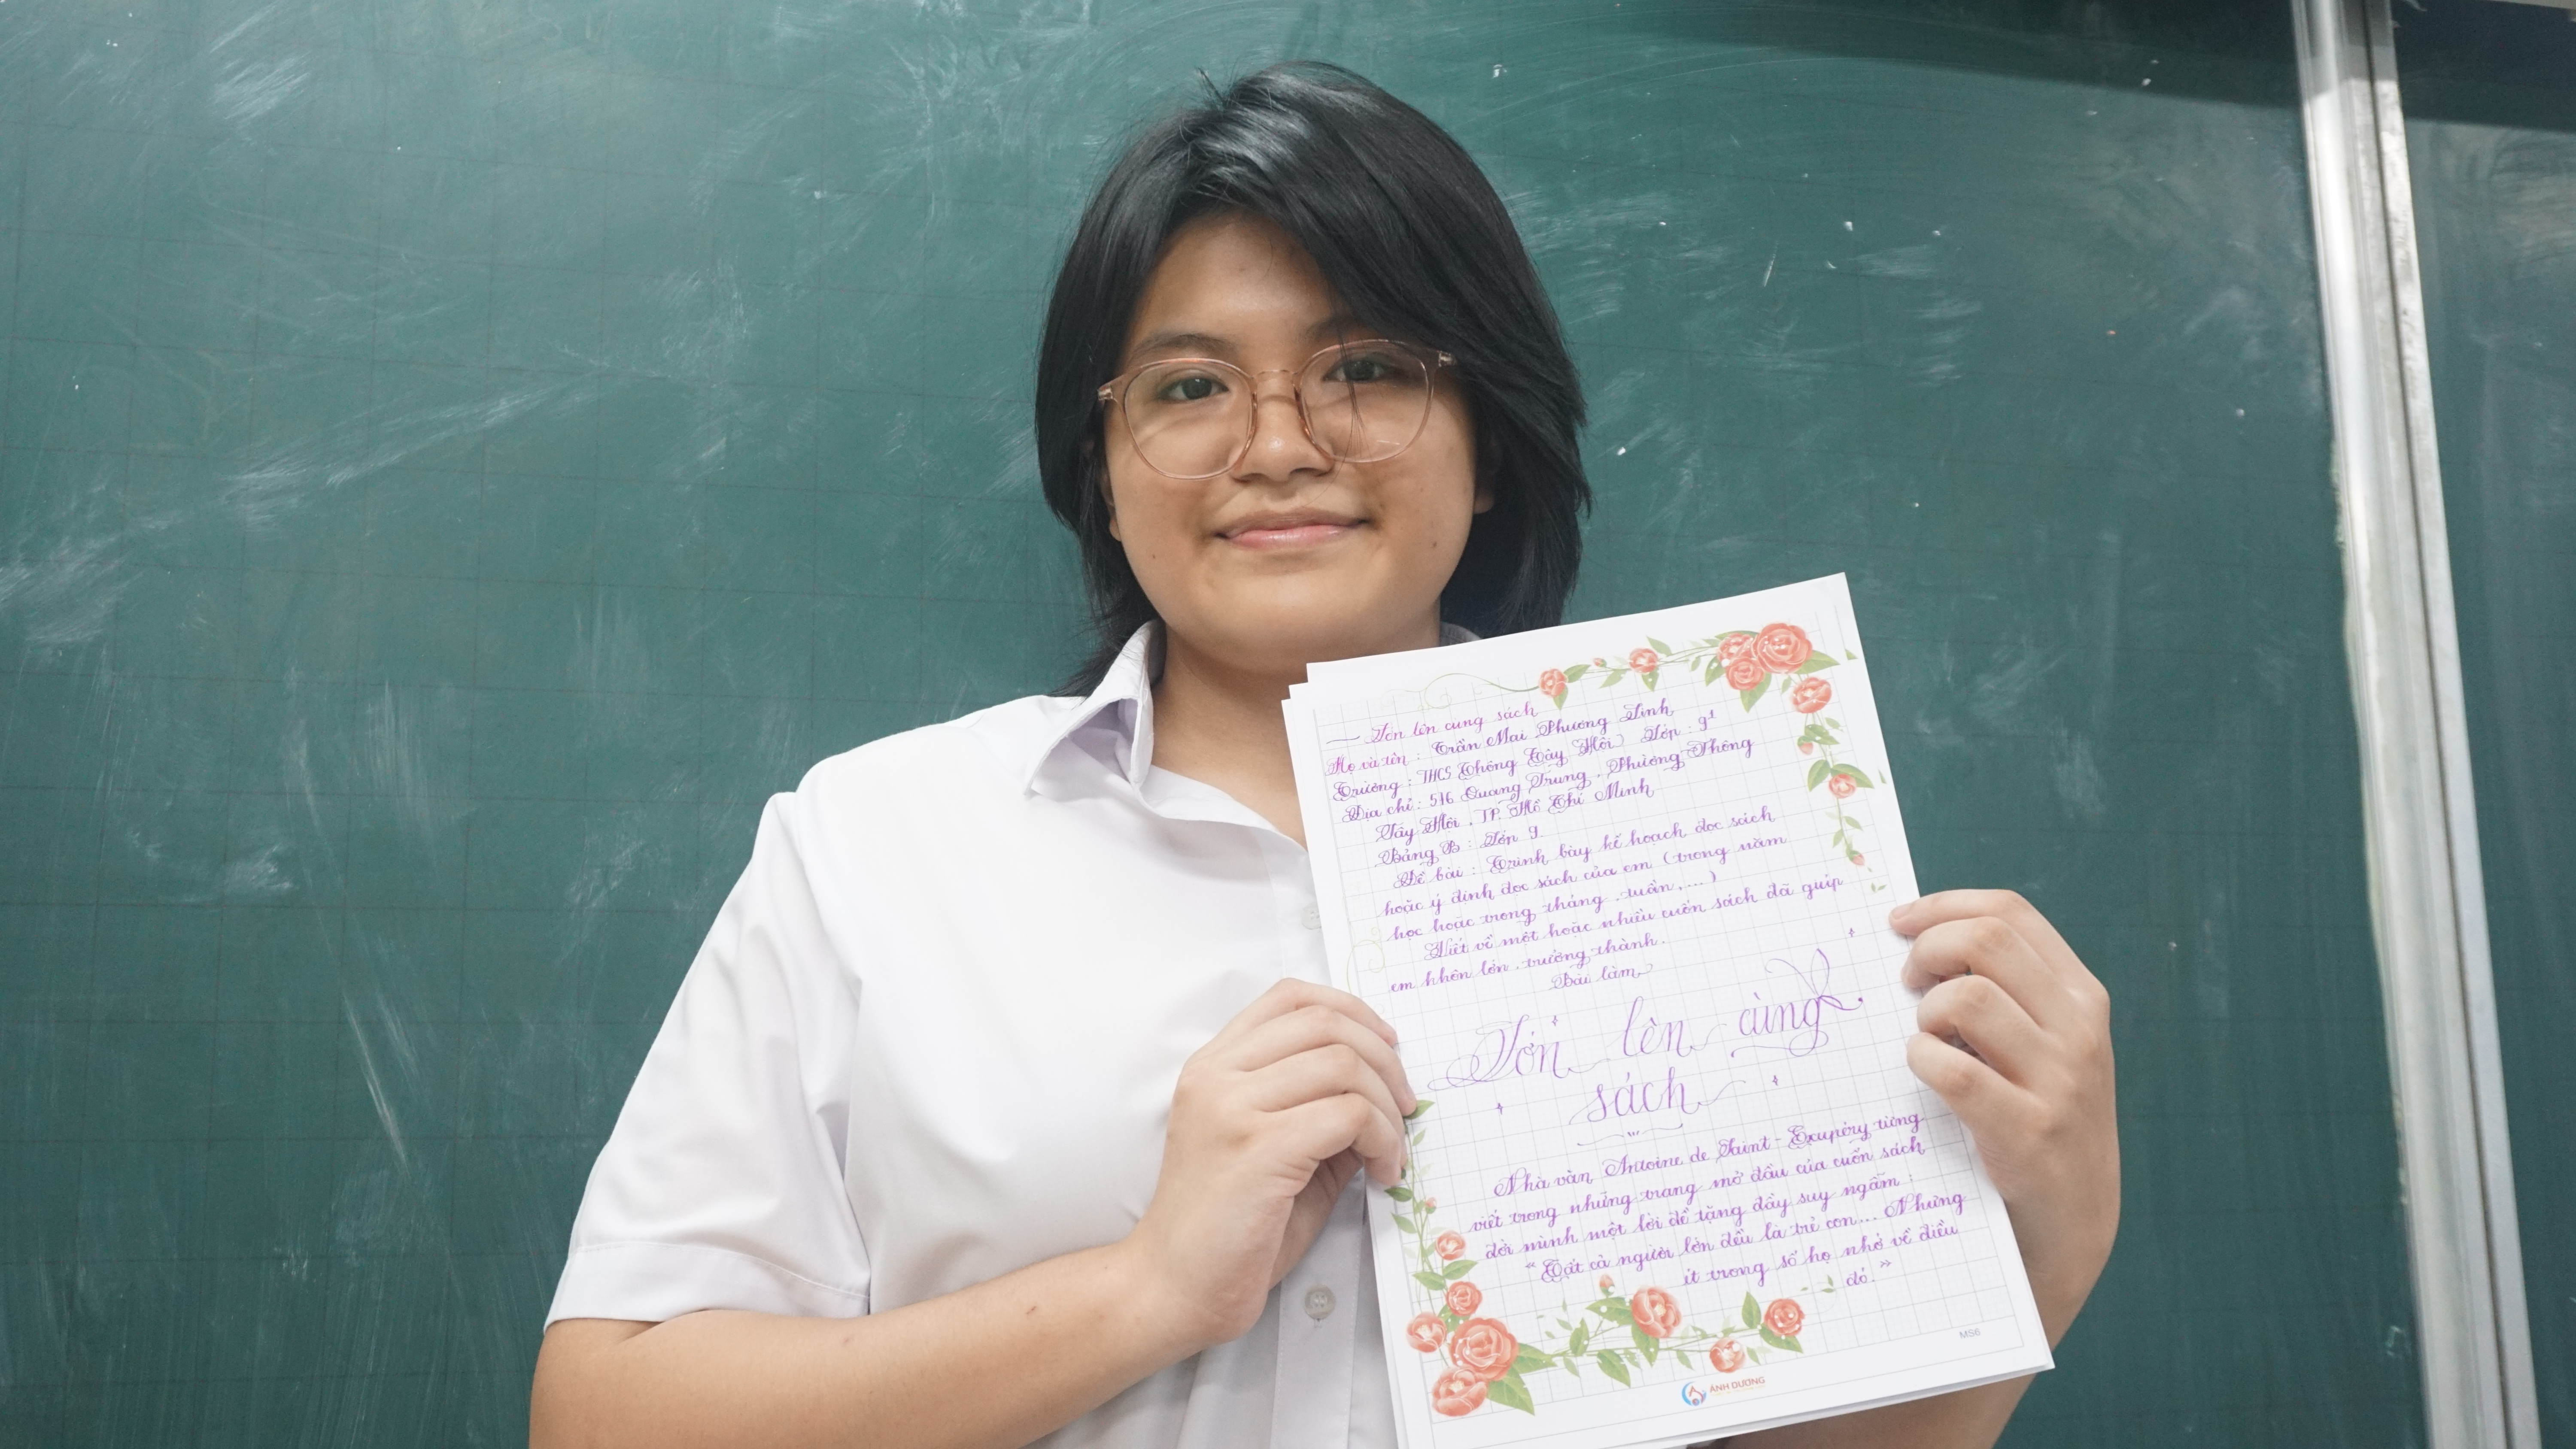 Lớn lên cùng sách
Họ và tên : Trần Mai Phương Linh
Trường : THCS Thông Tây Hội Lớp : 9¹
Địa chỉ : 516 Quang Trung , Phường Thông
Tây Hội , TP. Hồ Chí Minh
Bảng B : Lớp 9
Đề bài : Trình bày kế hoạch đọc sách
hoặc ý định đọc sách của em (trong năm
học hoặc trong tháng , tuần ,...)
Viết về một hoặc nhiều cuốn sách đã giúp
em khôn lớn , trưởng thành .
Bài làm
Lớn lên cùng
sách
Nhà văn Antoine de Saint - Exupéry từng
viết trong những trang mở đầu của cuốn sách
đời mình một lời đề tặng đầy suy ngẫm :
“ Tất cả người lớn đều là trẻ con... Nhưng
ít trong số họ nhớ về điều
đó. ”
MS6
ÁNH DƯƠNG